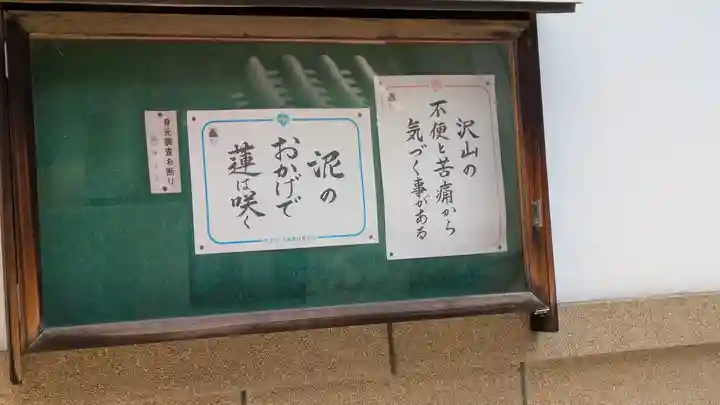 沢山の
不便と苦痛から
気づく事がある
泥の
おかげで
蓮は咲く
身元調査お断り